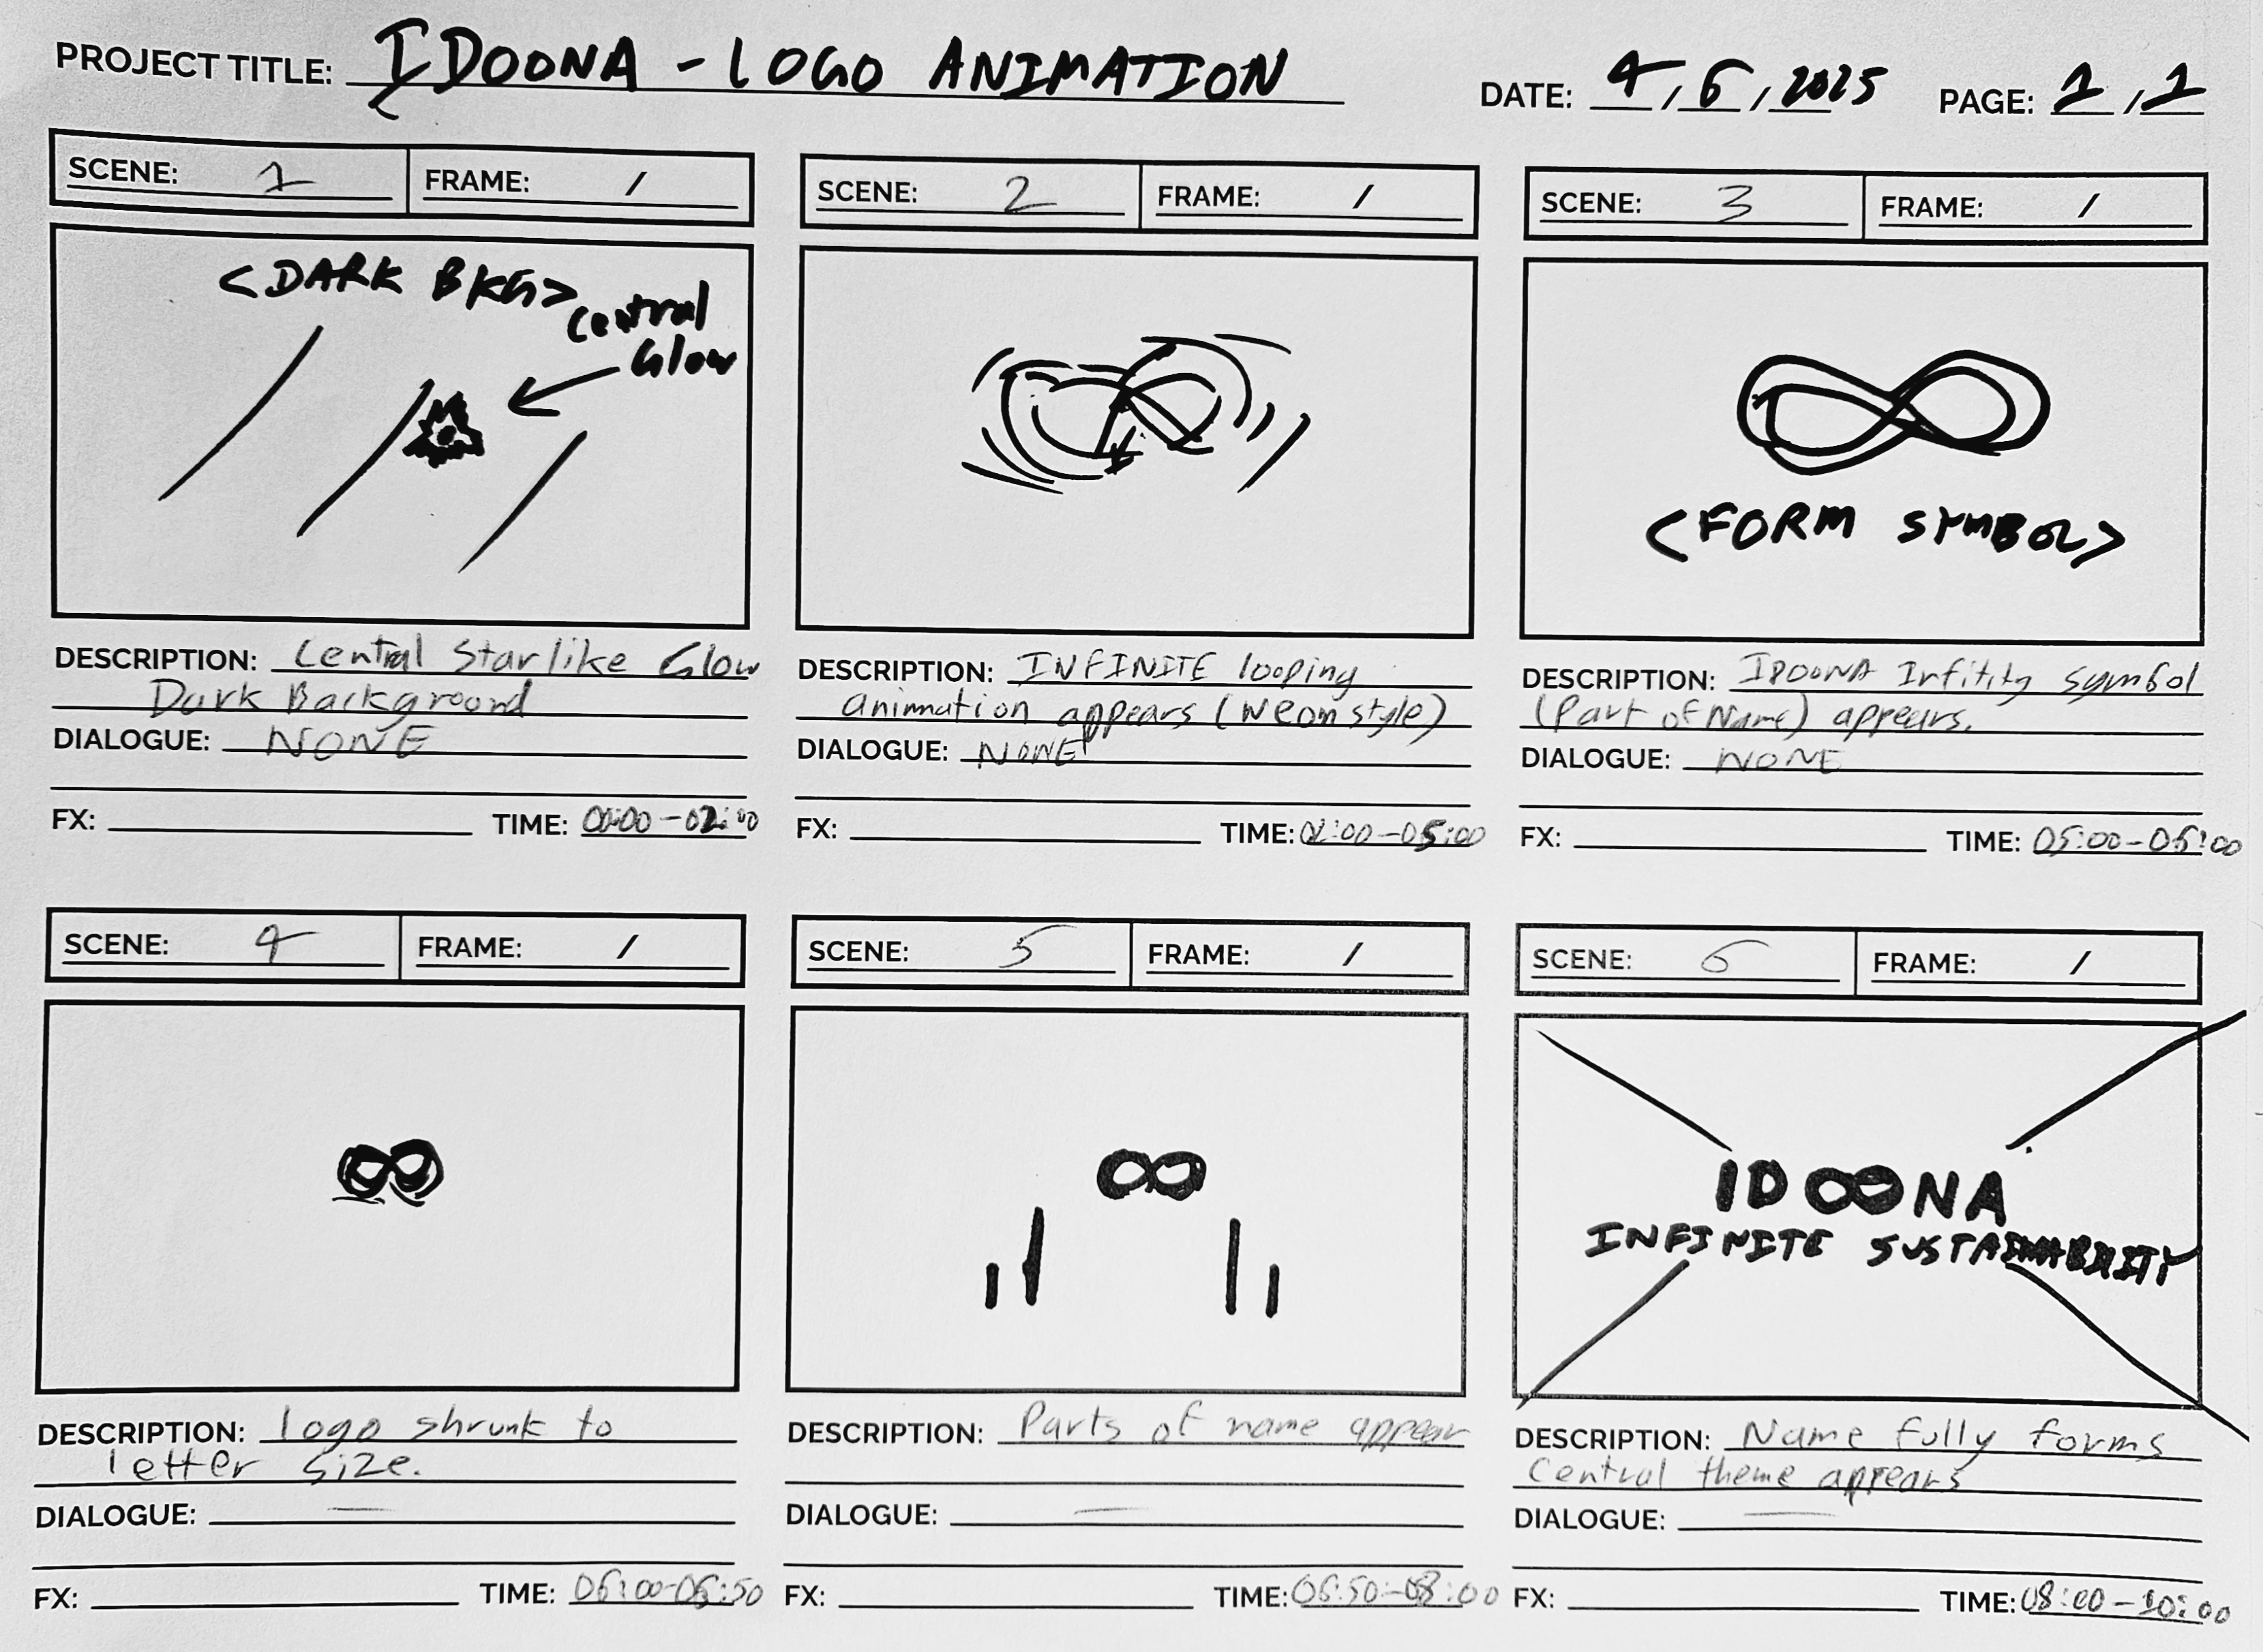 PROJECT TITLE: IDOONA - LOGO ANIMATION
DATE: 4/6/2025 PAGE: 1/1
SCENE: 1 FRAME: /
<DARK BKG>
Central
Glow
DESCRIPTION: Central Starlike Glow
Dark Background
DIALOGUE: NONE
FX: TIME: 00:00-02:00
SCENE: 2 FRAME: /
DESCRIPTION: INFINITE looping
animation appears (Neon style)
DIALOGUE: NONE
FX: TIME: 02:00-05:00
SCENE: 3 FRAME: /
<FORM SYMBOL>
DESCRIPTION: IDOONA Infitity symbol
(Part of Name) appears.
DIALOGUE: NONE
FX: TIME: 05:00-06:00
SCENE: 4 FRAME: /
DESCRIPTION: Logo shrunk to
letter size.
DIALOGUE: —
FX: TIME: 06:00-06:50
SCENE: 5 FRAME: /
∞
DESCRIPTION: Parts of name appear
DIALOGUE: —
FX: TIME: 06:50-08:00
SCENE: 6 FRAME: /
ID∞NA
INFINITE SUSTAINABILITY
DESCRIPTION: Name fully forms
Central theme appears
DIALOGUE: —
FX: TIME: 08:00-10:00